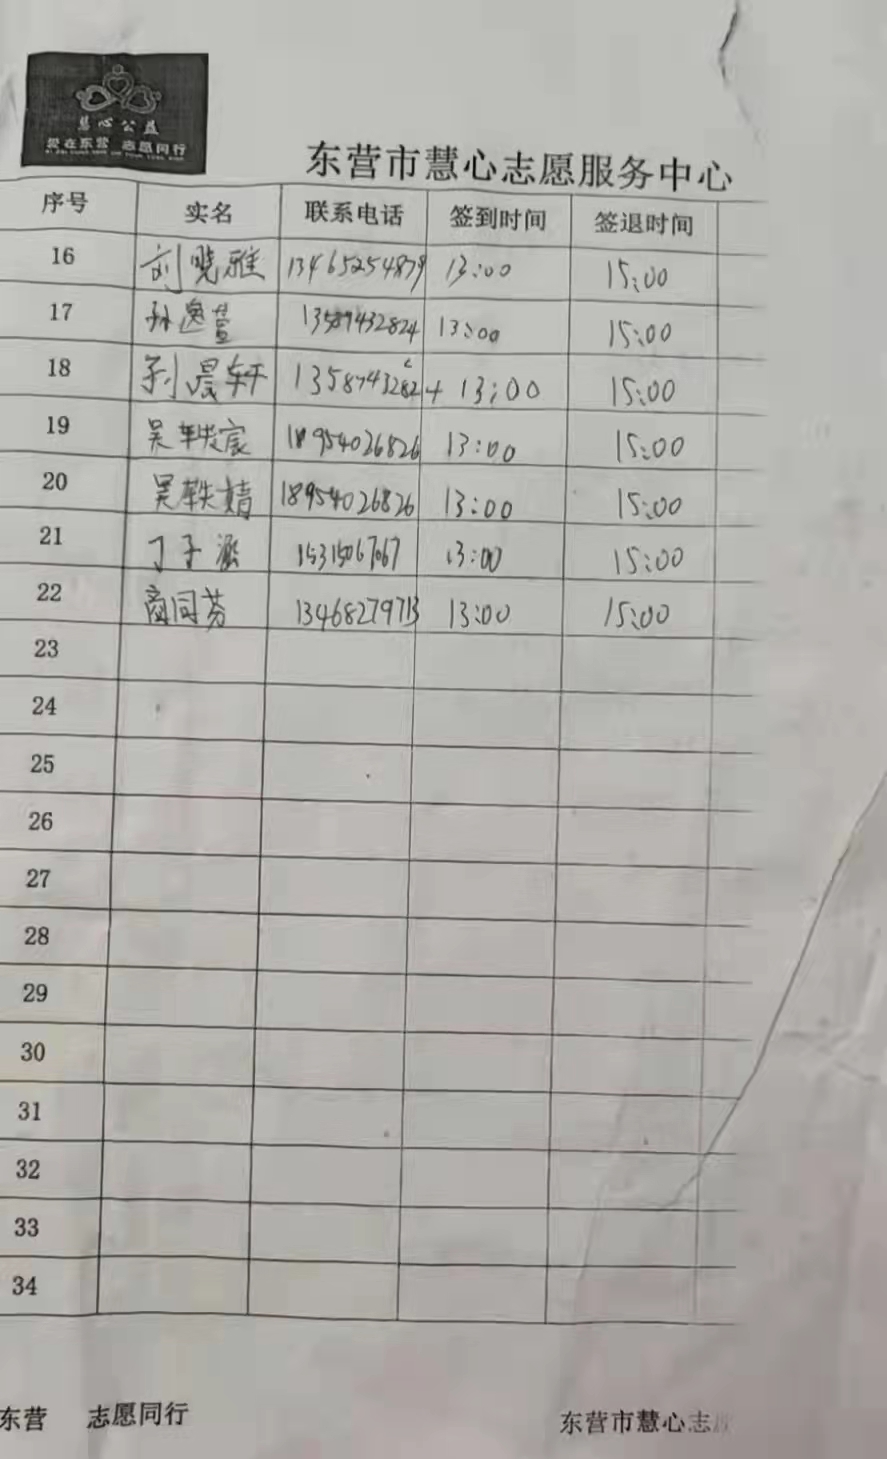 慧心公益
爱在东营 志愿同行
东营市慧心志愿服务中心
序号 实名 联系电话 签到时间 签退时间
16 刘晓雅 13465254879 13:00 15:00
17 孙逸萱 13589432824 13:00 15:00
18 刘晨轩 13587432824 13:00 15:00
19 吴轶宸 18954026826 13:00 15:00
20 吴轶婧 18954026826 13:00 15:00
21 丁子涵 15315067067 13:00 15:00
22 商同芬 13468279713 13:00 15:00
23
24
25
26
27
28
29
30
31
32
33
34
东营 志愿同行 东营市慧心志